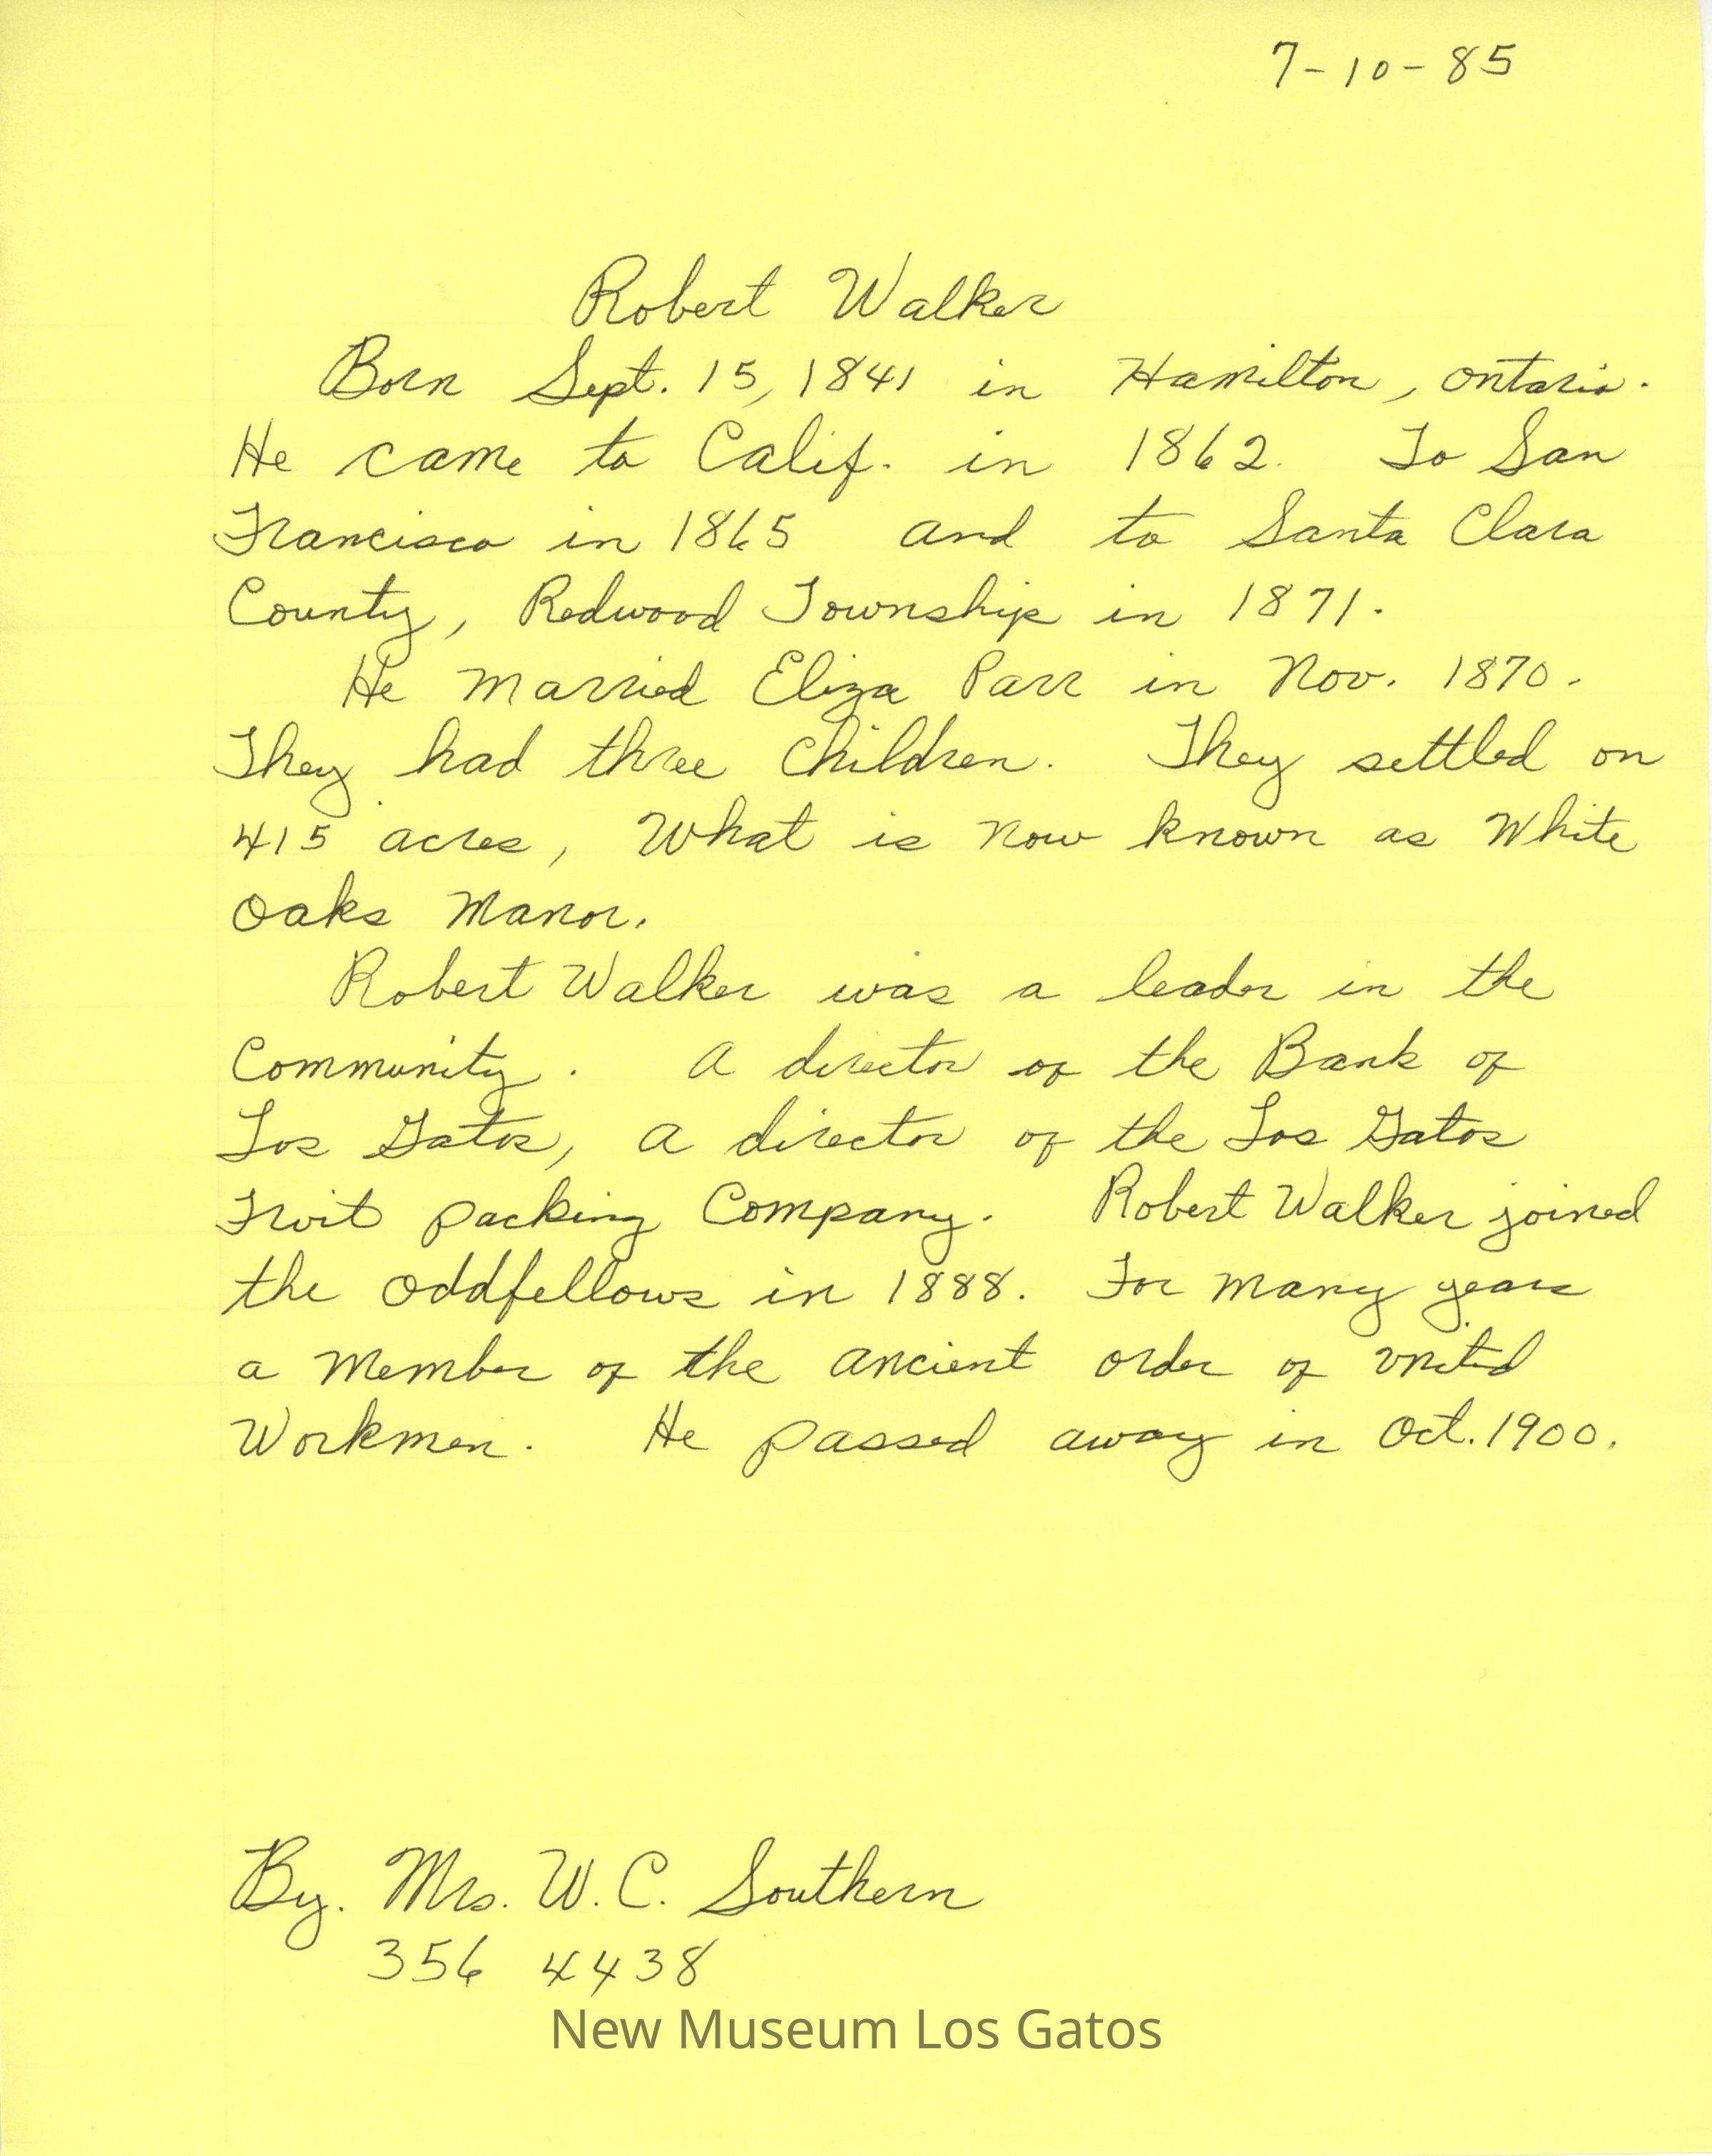 7-10-85
Robert Walker
Born Sept. 15, 1841 in Hamilton, Ontario.
He came to Calif. in 1862. To San
Francisco in 1865 and to Santa Clara
County, Redwood Township in 1871.
He married Eliza Parr in Nov. 1870.
They had three children. They settled on
415 acres, What is now known as White
Oaks Manor.
Robert Walker was a leader in the
Community. A director of the Bank of
Los Gatos, a director of the Los Gatos
Fruit packing Company. Robert Walker joined
the Oddfellows in 1888. For many years
a member of the ancient order of united
Workmen. He passed away in Oct. 1900.
By. Mrs. W. C. Southern
356 4438
New Museum Los Gatos